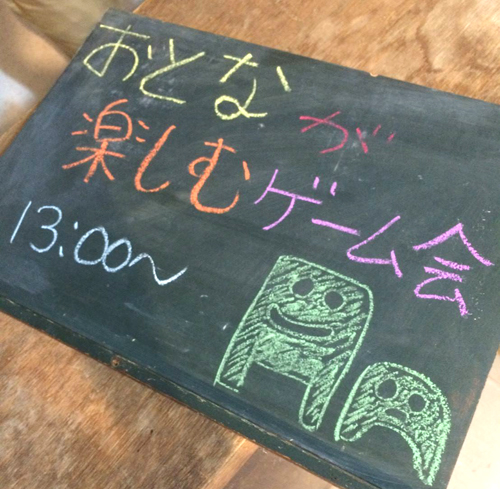 おとなが
楽しむゲーム会
13:00~